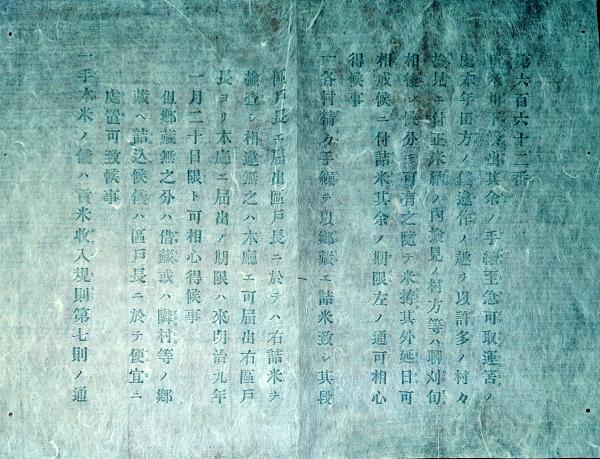 第六百六十二番
其余ノ手續至急可取運筈ノ
處本年田方ノ儀違作ノ趣ヲ以許多ノ村々
檢見ニ付正米納ノ内檢見ノ村方等ハ聊刈旬
相後レ候分モ可有之隨テ米拵其外延日可
相成候ニ付詰米其余ノ期限左ノ通可相心
得候事
一各村精々手繰ヲ以鄕藏エ詰米致シ其段
區戸長エ届出區戸長ニ於テハ右詰米ヲ
檢査シ相違無之ハ本廳エ可届出右區戸
長ヨリ本廳エ届出ノ期限ハ來明治九年
一月二十日限ト可相心得候事
但鄕藏無之分ハ借藏或ハ隣村等ノ鄕
藏ヘ詰込候儀ハ區戸長ニ於テ便宜ニ
處置可致候事
一手本米ノ儀ハ貢米收入規則第七則ノ通